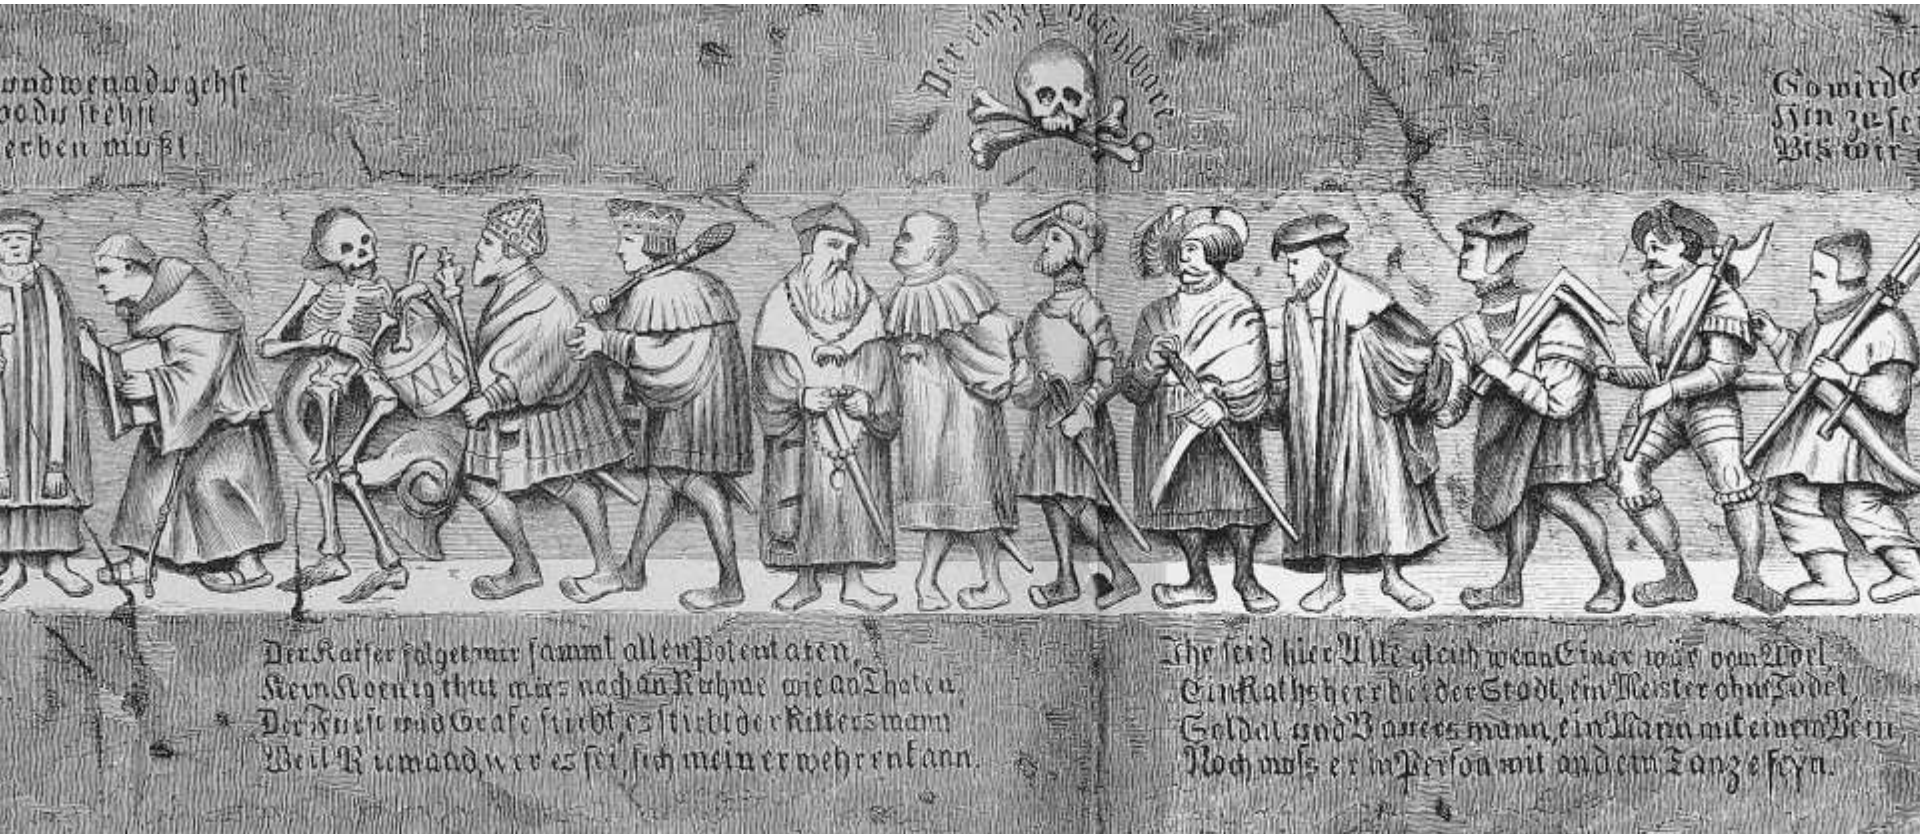 und wenn du gehst
wo du stehst
erben mußt.
Der einzig
So wird
Hin zu
Bis wir
Der Kaiser folget mir sammt allen Potentaten,
Kein Koenig thut mirs nach an Ruhme wie an Thaten,
Der Furst und Grafe stirbt, es stirbt der Rittersmann
Weil Niemand, wer es sei, sich meiner wehren kann.
Ihr seid hier Alle gleich wenn Einer wär vom Adel,
Ein Rathsherr bei der Stadt, ein Meister ohne Tadel,
Soldat und Bauersmann, ein Mann mit einem Bein,
Noch muss er in Person mit an dem Tanze seyn.